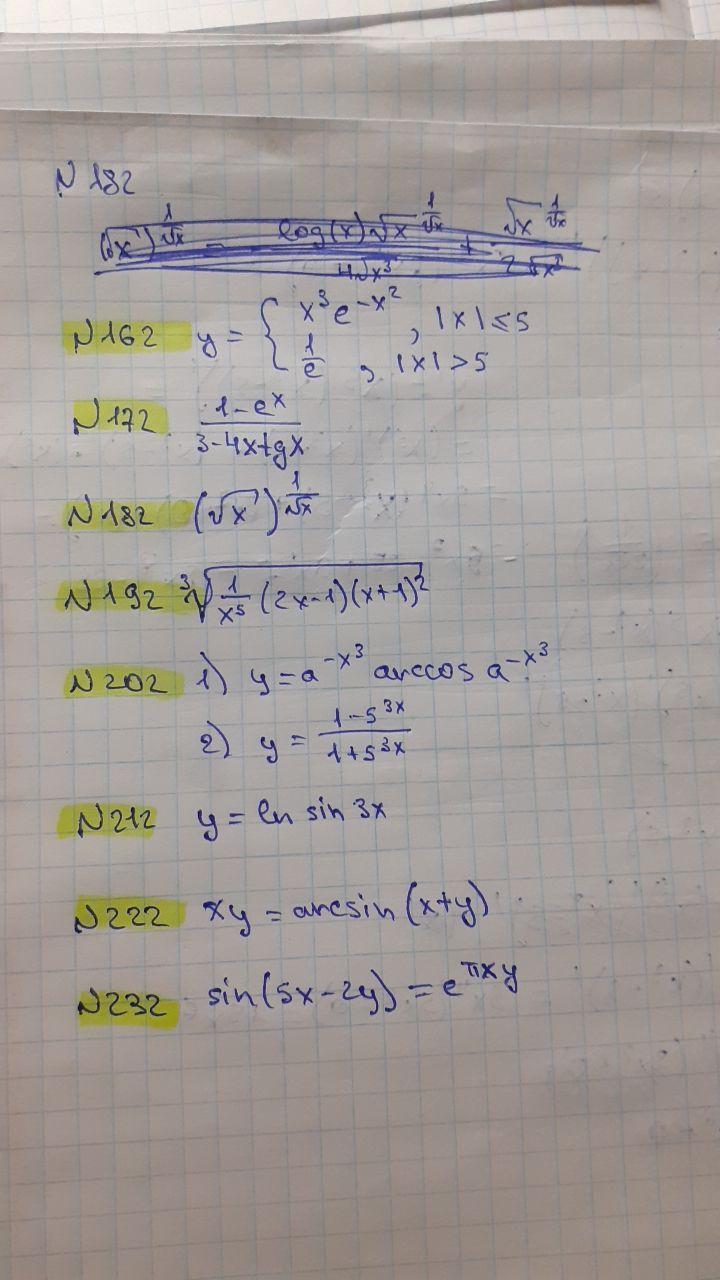 N 182
(√x)^(1/√x) - log(x)√x^(1/√x) / 4√x³ + √x^(1/√x) / 2√x³
N162 y = { x³e^(-x²), |x| ≤ 5
1/e, |x| > 5
N172 (1-e^x)/(3-4x+gx)
N182 (√x)^(1/√x)
N192 ³√(1/x⁵ (2x-1)(x+1)²)
N202 1) y = a^(-x³) arccos a^(-x³)
2) y = (1-5^(3x))/(1+5^(3x))
N212 y = ln sin 3x
N222 xy = arcsin (x+y)
N232 sin(5x-2y) = e^(πxy)